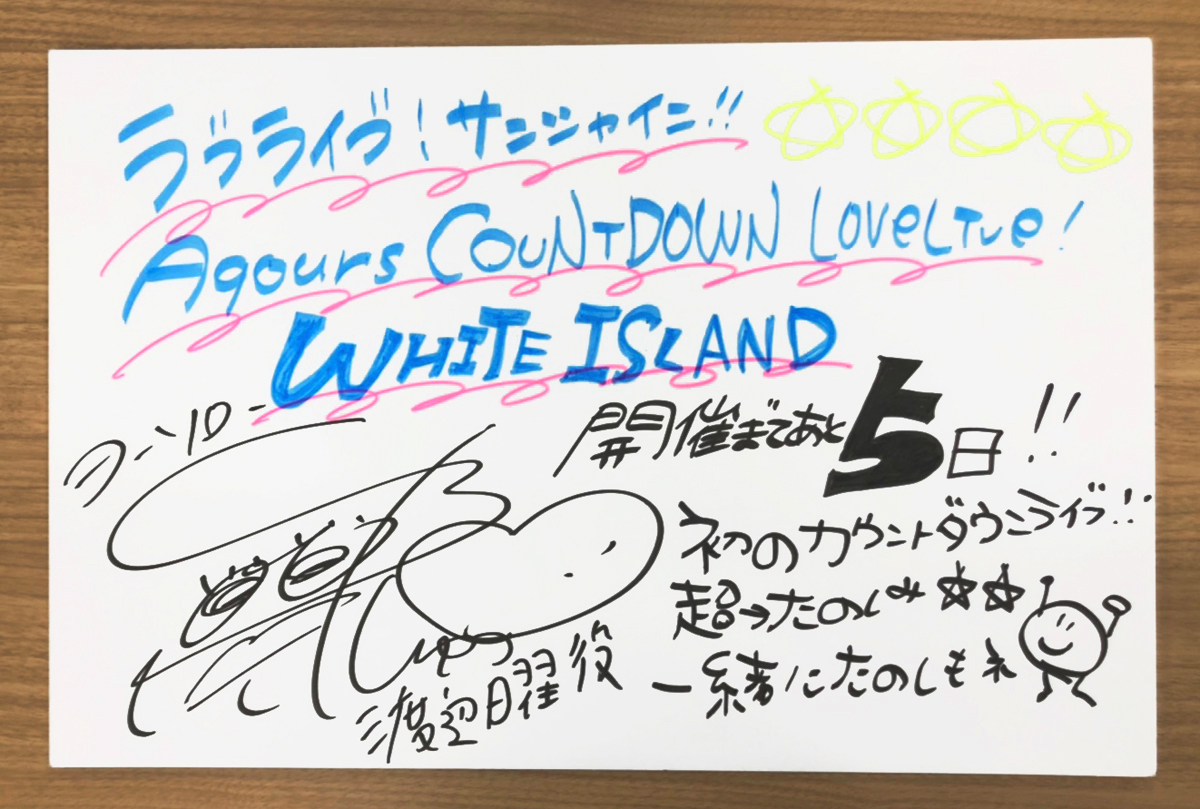 ラブライブ！サンシャイン!!
Aqours COUNTDOWN LOVELIVE!
WHITE ISLAND
開催まであと5日!!
初のカウントダウンライブ!!
超ったのしみ☆☆
一緒にたのしもネ
渡辺曜役